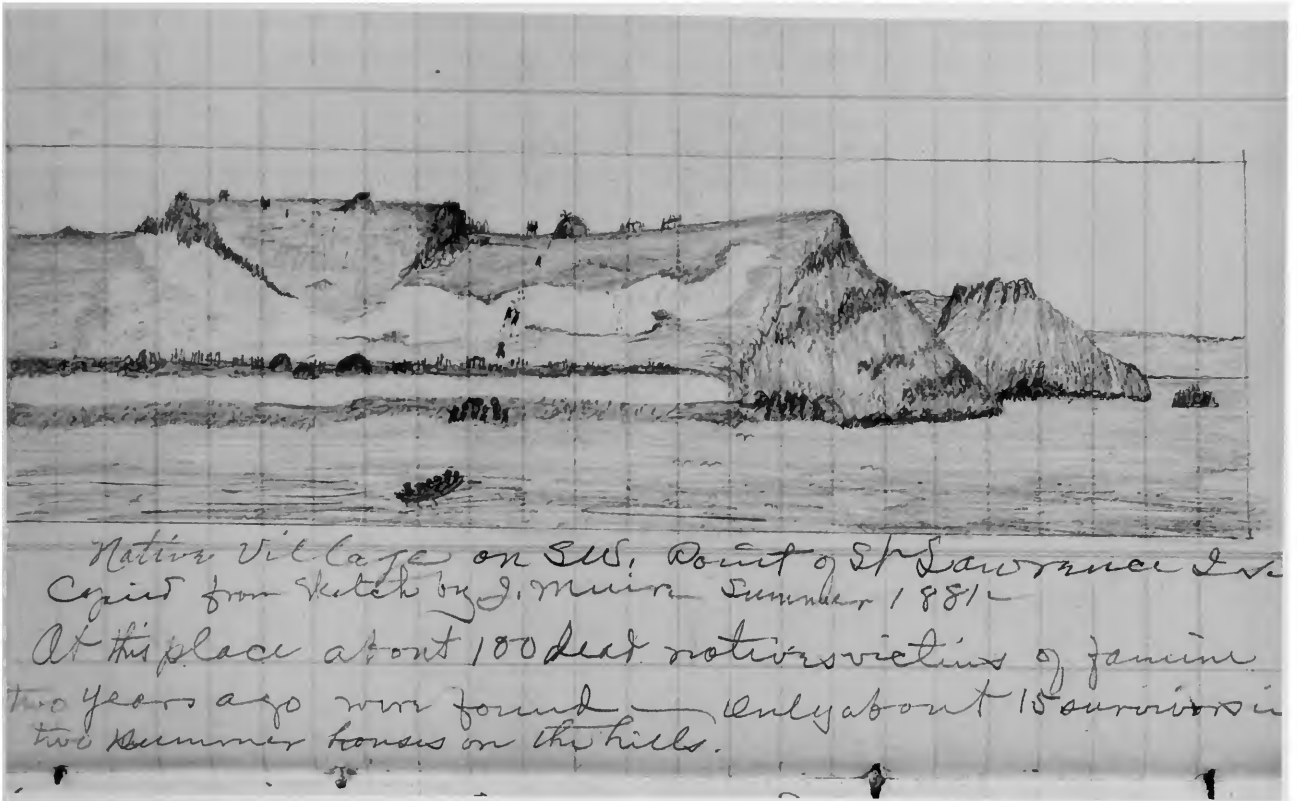 Native Village on SW. Point of St Lawrence Is.
Copied from Sketch by J. Muir Summer 1881
At this place about 100 dead natives victims of famine
two years ago were found — Only about 15 survivors in
two summer houses on the hills.